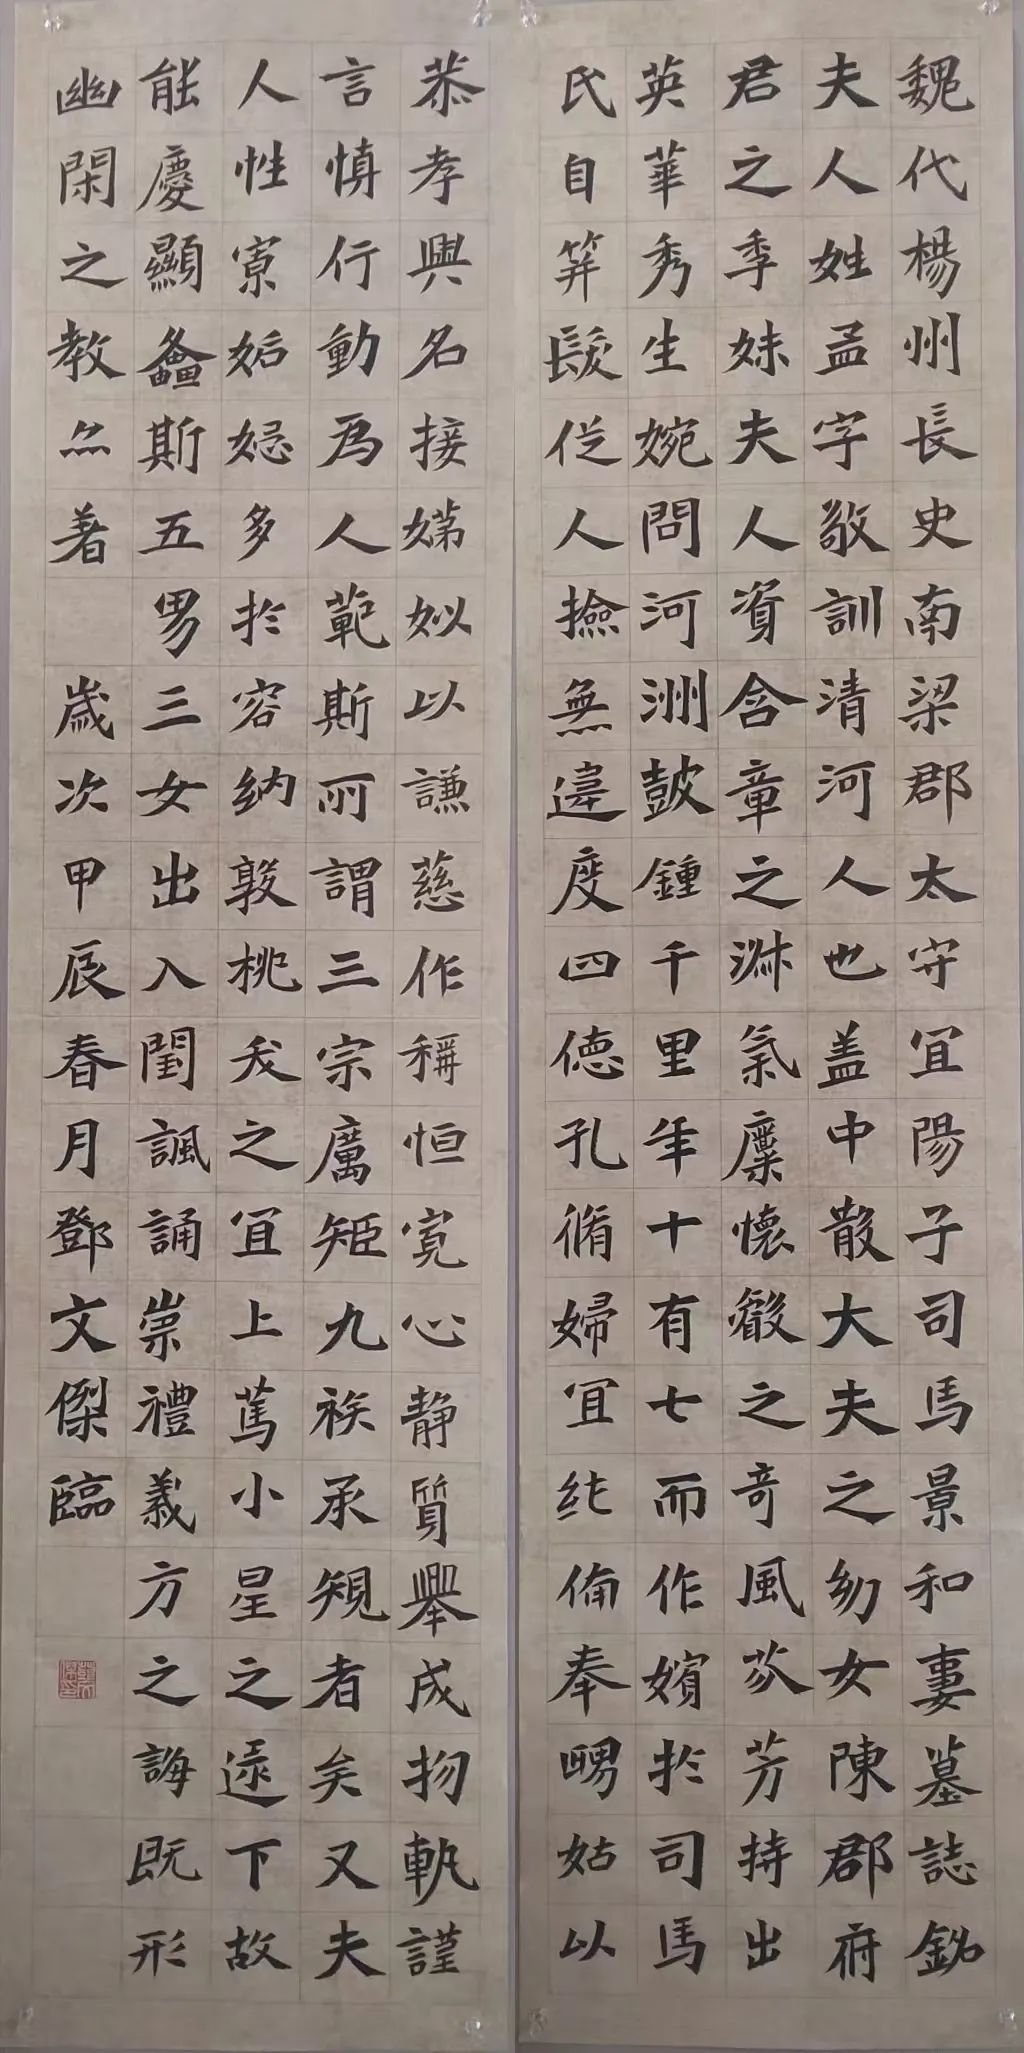 魏代楊州長史南梁郡太守宜陽子司馬景和妻墓誌銘
夫人姓孟字敬訓清河人也盖中散大夫之幼女陳郡府
君之季妹夫人資含章之淋氣麋懷叡之奇風芬芳特出
英華秀生婉問河洲鼓鍾千里年十有七而作嬪於司馬
氏自笄髮從人撿無違度四德孔脩婦宜純備奉舅姑以
恭孝興名接娣姒以謙慈作稱恒寬心静質舉成物軌謹
言慎行動為人範斯所謂三宗厲矩九族承規者矣又夫
人性寡妬忌多於容納敦桃夭之宜上篤小星之逮下故
能慶顯螽斯五男三女出入閨諷誦崇禮義方之誨既形
幽閑之教亦著 歲次甲辰春月鄧文傑臨